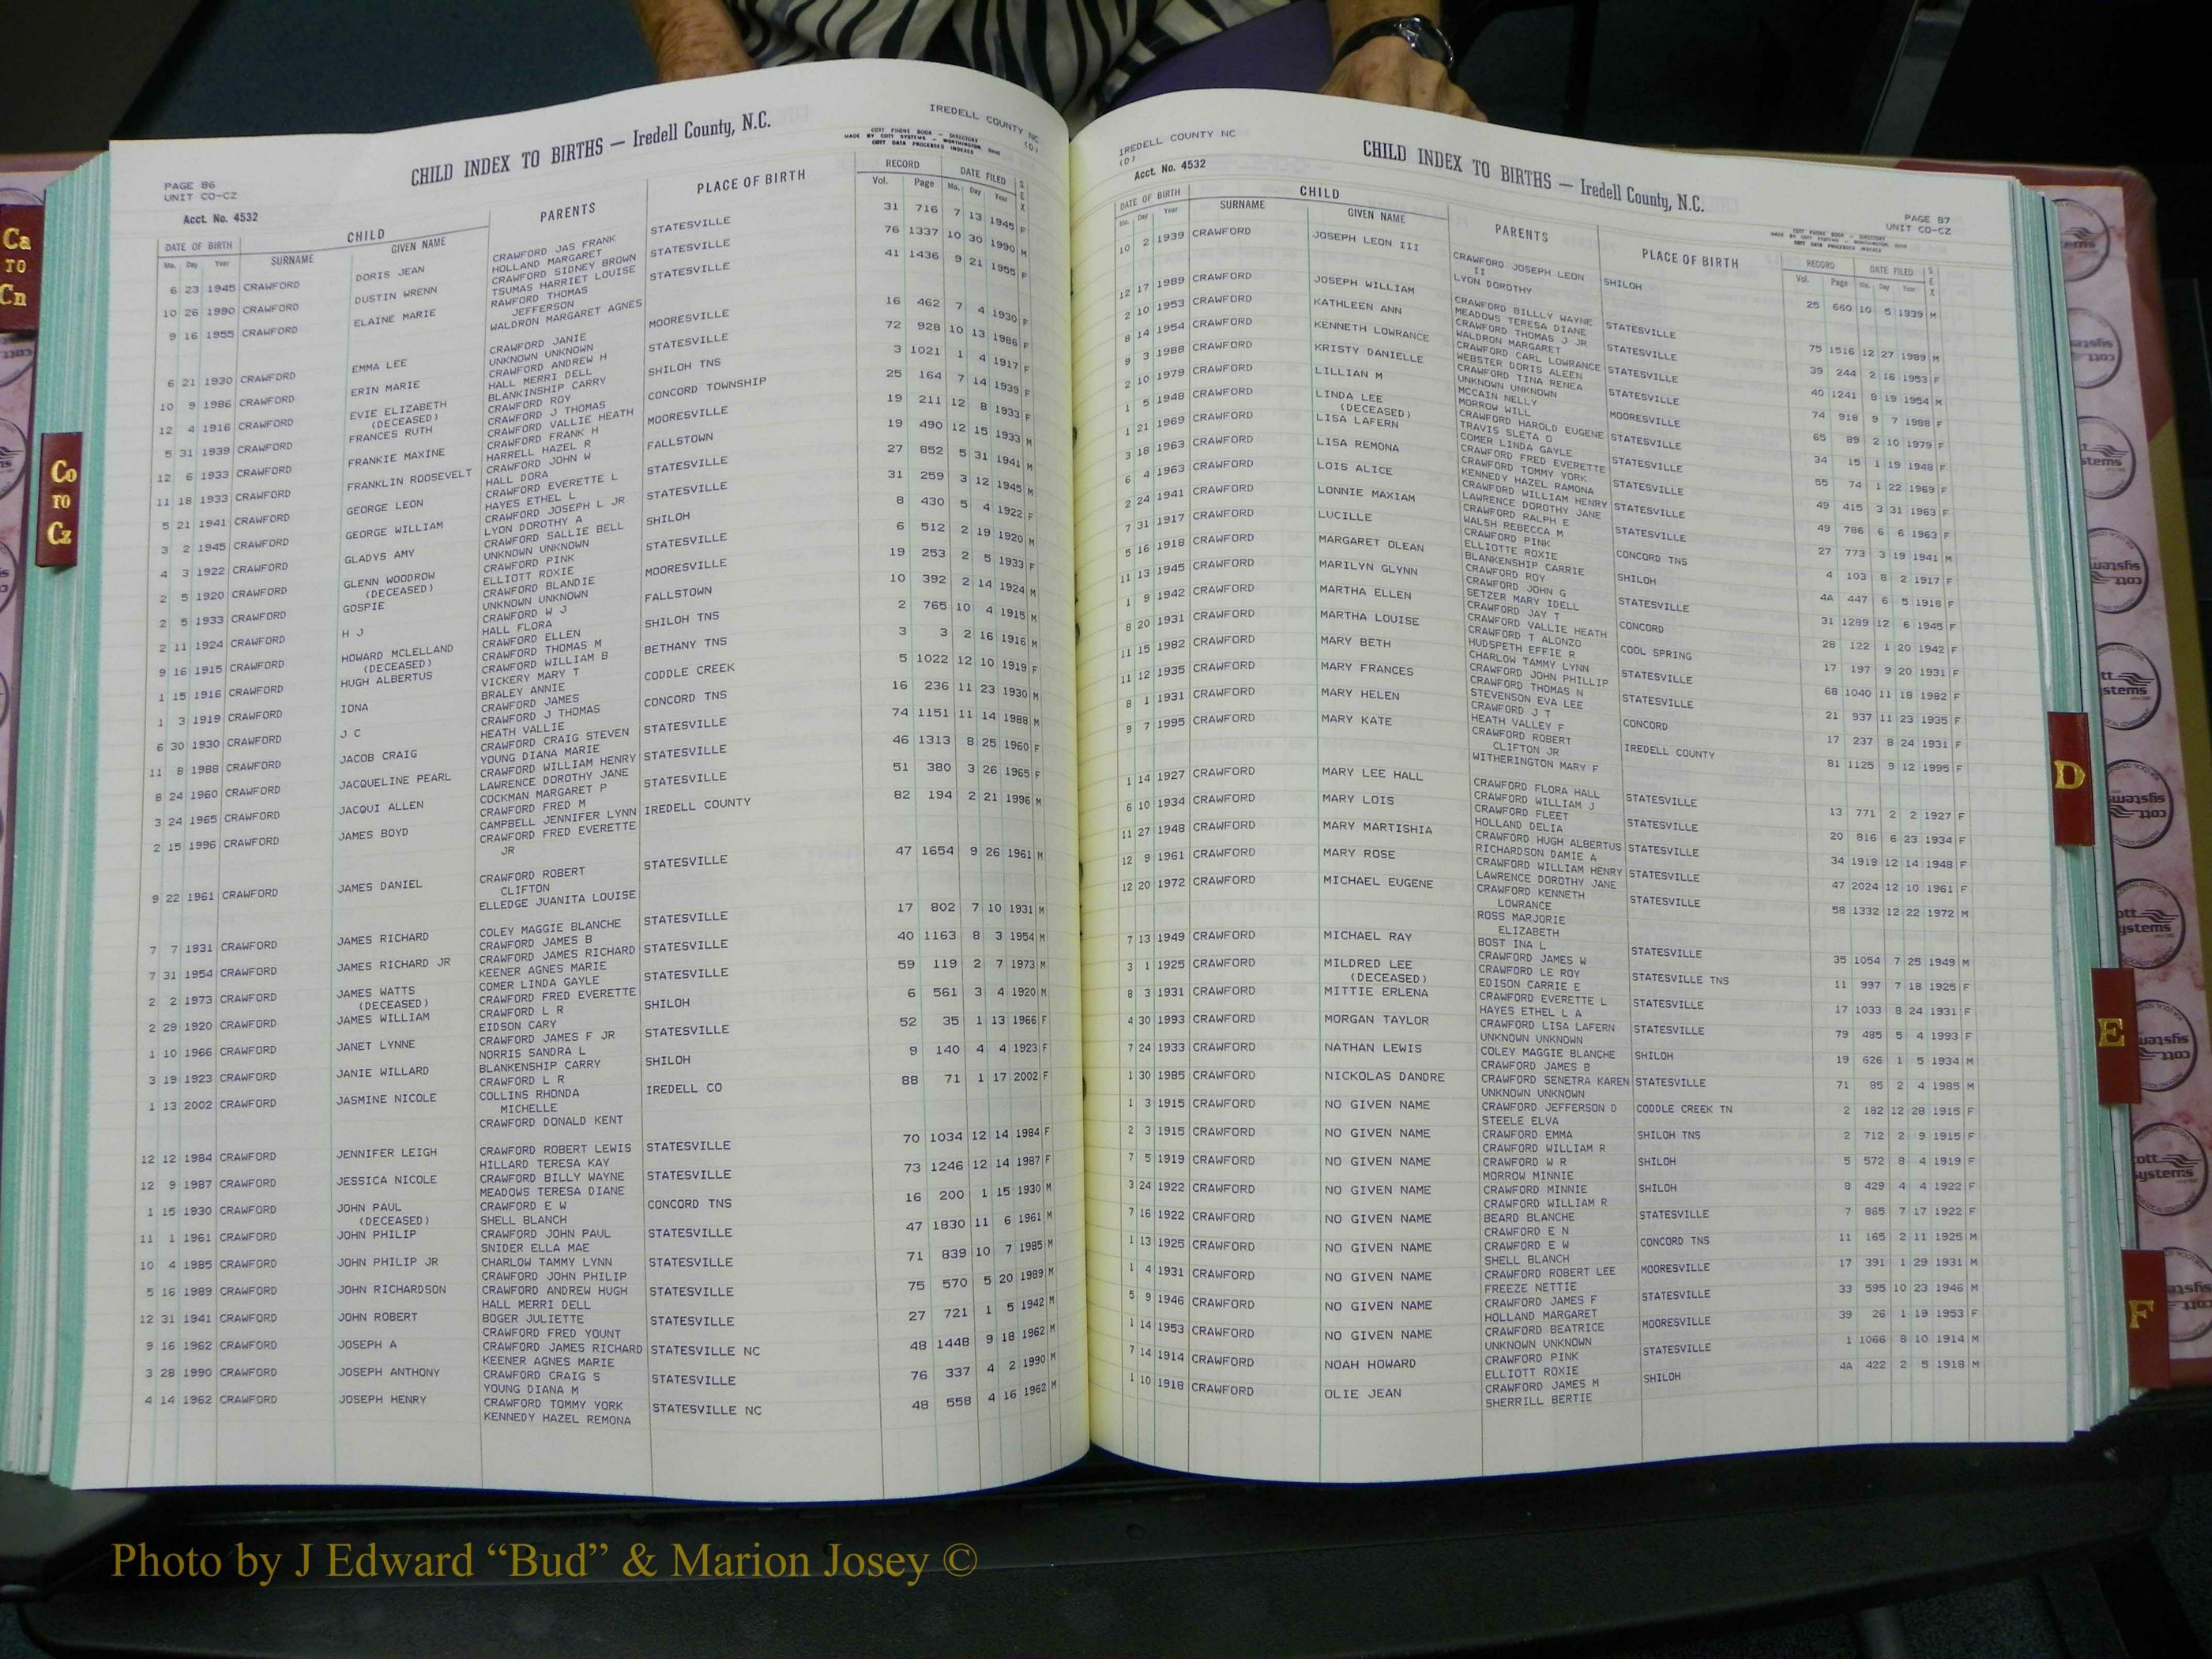 Ca
TO
Cn
Co
TO
Cz
IREDELL COUNTY NC
(D)
CHILD INDEX TO BIRTHS — Iredell County, N.C.
PAGE 86
UNIT CO-CZ
Acct. No. 4532
COTT PHONE BOOK - DIRECTORY
MADE BY COTT SYSTEMS - WORTHINGTON, OHIO
COTT DATA PROCESSED INDEXES
DATE OF BIRTH CHILD PARENTS PLACE OF BIRTH RECORD DATE FILED SEX
Mo. Day Year SURNAME GIVEN NAME Vol. Page Mo. Day Year
6 23 1945 CRAWFORD DORIS JEAN CRAWFORD JAS FRANK STATESVILLE 31 716 7 13 1945 F
HOLLAND MARGARET
10 26 1990 CRAWFORD DUSTIN WRENN CRAWFORD SIDNEY BROWN STATESVILLE 76 1337 10 30 1990 M
TSUMAS HARRIET LOUISE
9 16 1955 CRAWFORD ELAINE MARIE RAWFORD THOMAS STATESVILLE 41 1436 9 21 1955 F
JEFFERSON
WALDRON MARGARET AGNES
6 21 1930 CRAWFORD EMMA LEE CRAWFORD JANIE MOORESVILLE 16 462 7 4 1930 F
UNKNOWN UNKNOWN
10 9 1986 CRAWFORD ERIN MARIE CRAWFORD ANDREW H STATESVILLE 72 928 10 13 1986 F
HALL MERRI DELL
12 4 1916 CRAWFORD EVIE ELIZABETH BLANKINSHIP CARRY SHILOH TNS 3 1021 1 4 1917 F
(DECEASED) CRAWFORD ROY
5 31 1939 CRAWFORD FRANCES RUTH CRAWFORD J THOMAS CONCORD TOWNSHIP 25 164 7 14 1939 F
CRAWFORD VALLIE HEATH
12 6 1933 CRAWFORD FRANKIE MAXINE CRAWFORD FRANK H MOORESVILLE 19 211 12 8 1933 F
HARRELL HAZEL R
11 18 1933 CRAWFORD FRANKLIN ROOSEVELT CRAWFORD JOHN W FALLSTOWN 19 490 12 15 1933 M
HALL DORA
5 21 1941 CRAWFORD GEORGE LEON CRAWFORD EVERETTE L STATESVILLE 27 852 5 31 1941 M
HAYES ETHEL L
3 2 1945 CRAWFORD GEORGE WILLIAM CRAWFORD JOSEPH L JR STATESVILLE 31 259 3 12 1945 M
LYON DOROTHY A
4 3 1922 CRAWFORD GLADYS AMY CRAWFORD SALLIE BELL SHILOH 8 430 5 4 1922 F
UNKNOWN UNKNOWN
2 5 1920 CRAWFORD GLENN WOODROW CRAWFORD PINK STATESVILLE 6 512 2 19 1920 M
(DECEASED) ELLIOTT ROXIE
2 5 1933 CRAWFORD GOSPIE CRAWFORD BLANDIE MOORESVILLE 19 253 2 5 1933 F
UNKNOWN UNKNOWN
2 11 1924 CRAWFORD H J CRAWFORD W J FALLSTOWN 10 392 2 14 1924 M
HALL FLORA
9 16 1915 CRAWFORD HOWARD MCLELLAND CRAWFORD ELLEN SHILOH TNS 2 765 10 4 1915 M
(DECEASED) CRAWFORD THOMAS M
1 15 1916 CRAWFORD HUGH ALBERTUS CRAWFORD WILLIAM B BETHANY TNS 3 3 2 16 1916 M
VICKERY MARY T
1 3 1919 CRAWFORD IONA BRALEY ANNIE CODDLE CREEK 5 1022 12 10 1919 F
CRAWFORD JAMES
6 30 1930 CRAWFORD J C CRAWFORD J THOMAS CONCORD TNS 16 236 11 23 1930 M
HEATH VALLIE
11 8 1988 CRAWFORD JACOB CRAIG CRAWFORD CRAIG STEVEN STATESVILLE 74 1151 11 14 1988 M
YOUNG DIANA MARIE
8 24 1960 CRAWFORD JACQUELINE PEARL CRAWFORD WILLIAM HENRY STATESVILLE 46 1313 8 25 1960 F
LAWRENCE DOROTHY JANE
3 24 1965 CRAWFORD JACQUI ALLEN COCKMAN MARGARET P STATESVILLE 51 380 3 26 1965 F
CRAWFORD FRED M
2 15 1996 CRAWFORD JAMES BOYD CAMPBELL JENNIFER LYNN IREDELL COUNTY 82 194 2 21 1996 M
CRAWFORD FRED EVERETTE
JR
9 22 1961 CRAWFORD JAMES DANIEL CRAWFORD ROBERT STATESVILLE 47 1654 9 26 1961 M
CLIFTON
ELLEDGE JUANITA LOUISE
7 7 1931 CRAWFORD JAMES RICHARD COLEY MAGGIE BLANCHE STATESVILLE 17 802 7 10 1931 M
CRAWFORD JAMES B
7 31 1954 CRAWFORD JAMES RICHARD JR CRAWFORD JAMES RICHARD STATESVILLE 40 1163 8 3 1954 M
KEENER AGNES MARIE
2 2 1973 CRAWFORD JAMES WATTS COMER LINDA GAYLE STATESVILLE 59 119 2 7 1973 M
(DECEASED) CRAWFORD FRED EVERETTE
2 29 1920 CRAWFORD JAMES WILLIAM CRAWFORD L R SHILOH 6 561 3 4 1920 M
EIDSON CARY
1 10 1966 CRAWFORD JANET LYNNE CRAWFORD JAMES F JR STATESVILLE 52 35 1 13 1966 F
NORRIS SANDRA L
3 19 1923 CRAWFORD JANIE WILLARD BLANKENSHIP CARRY SHILOH 9 140 4 4 1923 F
CRAWFORD L R
1 13 2002 CRAWFORD JASMINE NICOLE COLLINS RHONDA IREDELL CO 88 71 1 17 2002 F
MICHELLE
CRAWFORD DONALD KENT
12 12 1984 CRAWFORD JENNIFER LEIGH CRAWFORD ROBERT LEWIS STATESVILLE 70 1034 12 14 1984 F
HILLARD TERESA KAY
12 9 1987 CRAWFORD JESSICA NICOLE CRAWFORD BILLY WAYNE STATESVILLE 73 1246 12 14 1987 F
MEADOWS TERESA DIANE
1 15 1930 CRAWFORD JOHN PAUL CRAWFORD E W CONCORD TNS 16 200 1 15 1930 M
(DECEASED) SHELL BLANCH
11 1 1961 CRAWFORD JOHN PHILIP CRAWFORD JOHN PAUL STATESVILLE 47 1830 11 6 1961 M
SNIDER ELLA MAE
10 4 1985 CRAWFORD JOHN PHILIP JR CHARLOW TAMMY LYNN STATESVILLE 71 839 10 7 1985 M
CRAWFORD JOHN PHILIP
5 16 1989 CRAWFORD JOHN RICHARDSON CRAWFORD ANDREW HUGH STATESVILLE 75 570 5 20 1989 M
HALL MERRI DELL
12 31 1941 CRAWFORD JOHN ROBERT BOGER JULIETTE STATESVILLE 27 721 1 5 1942 M
CRAWFORD FRED YOUNT
9 16 1962 CRAWFORD JOSEPH A CRAWFORD JAMES RICHARD STATESVILLE NC 48 1448 9 18 1962 M
KEENER AGNES MARIE
3 28 1990 CRAWFORD JOSEPH ANTHONY CRAWFORD CRAIG S STATESVILLE 76 337 4 2 1990 M
YOUNG DIANA M
4 14 1962 CRAWFORD JOSEPH HENRY CRAWFORD TOMMY YORK STATESVILLE NC 48 558 4 16 1962 M
KENNEDY HAZEL REMONA
IREDELL COUNTY NC
(D)
Acct. No. 4532
CHILD INDEX TO BIRTHS — Iredell County, N.C.
PAGE 87
UNIT CO-CZ
DATE OF BIRTH CHILD PARENTS PLACE OF BIRTH RECORD DATE FILED SEX
Mo. Day Year SURNAME GIVEN NAME Vol. Page Mo. Day Year
10 2 1939 CRAWFORD JOSEPH LEON III CRAWFORD JOSEPH LEON SHILOH 25 660 10 5 1939 M
II
LYON DOROTHY
12 17 1989 CRAWFORD JOSEPH WILLIAM CRAWFORD BILLLY WAYNE STATESVILLE 75 1516 12 27 1989 M
MEADOWS TERESA DIANE
2 10 1953 CRAWFORD KATHLEEN ANN CRAWFORD THOMAS J JR STATESVILLE 39 244 2 16 1953 F
WALDRON MARGARET
8 14 1954 CRAWFORD KENNETH LOWRANCE CRAWFORD CARL LOWRANCE STATESVILLE 40 1241 8 19 1954 M
WEBSTER DORIS ALEEN
9 3 1988 CRAWFORD KRISTY DANIELLE CRAWFORD TINA RENEA STATESVILLE 74 918 9 7 1988 F
UNKNOWN UNKNOWN
2 10 1979 CRAWFORD LILLIAN M MCCAIN NELLY MOORESVILLE 65 89 2 10 1979 F
MORROW WILL
1 5 1948 CRAWFORD LINDA LEE CRAWFORD HAROLD EUGENE STATESVILLE 34 15 1 19 1948 F
(DECEASED) TRAVIS SLETA O
1 21 1969 CRAWFORD LISA LAFERN COMER LINDA GAYLE STATESVILLE 55 74 1 22 1969 F
CRAWFORD FRED EVERETTE
3 18 1963 CRAWFORD LISA REMONA CRAWFORD TOMMY YORK STATESVILLE 49 415 3 31 1963 F
KENNEDY HAZEL RAMONA
6 4 1963 CRAWFORD LOIS ALICE CRAWFORD WILLIAM HENRY STATESVILLE 49 786 6 6 1963 F
LAWRENCE DOROTHY JANE
2 24 1941 CRAWFORD LONNIE MAXIAM CRAWFORD RALPH E STATESVILLE 27 773 3 19 1941 M
WALSH REBECCA M
7 31 1917 CRAWFORD LUCILLE CRAWFORD PINK CONCORD TNS 4 103 8 2 1917 F
ELLIOTTE ROXIE
5 16 1918 CRAWFORD MARGARET OLEAN BLANKENSHIP CARRIE SHILOH 4A 447 6 5 1918 F
CRAWFORD ROY
11 13 1945 CRAWFORD MARILYN GLYNN CRAWFORD JOHN G STATESVILLE 31 1289 12 6 1945 F
SETZER MARY IDELL
1 9 1942 CRAWFORD MARTHA ELLEN CRAWFORD JAY T CONCORD 28 122 1 20 1942 F
CRAWFORD VALLIE HEATH
8 20 1931 CRAWFORD MARTHA LOUISE CRAWFORD T ALONZO COOL SPRING 17 197 9 20 1931 F
HUDSPETH EFFIE R
11 15 1982 CRAWFORD MARY BETH CHARLOW TAMMY LYNN STATESVILLE 68 1040 11 18 1982 F
CRAWFORD JOHN PHILLIP
11 12 1935 CRAWFORD MARY FRANCES CRAWFORD THOMAS N STATESVILLE 21 937 11 23 1935 F
STEVENSON EVA LEE
8 1 1931 CRAWFORD MARY HELEN CRAWFORD J T CONCORD 17 237 8 24 1931 F
HEATH VALLEY F
9 7 1995 CRAWFORD MARY KATE CRAWFORD ROBERT IREDELL COUNTY 81 1125 9 12 1995 F
CLIFTON JR
WITHERINGTON MARY F
1 14 1927 CRAWFORD MARY LEE HALL CRAWFORD FLORA HALL STATESVILLE 13 771 2 2 1927 F
CRAWFORD WILLIAM J
6 10 1934 CRAWFORD MARY LOIS CRAWFORD FLEET STATESVILLE 20 816 6 23 1934 F
HOLLAND DELIA
11 27 1948 CRAWFORD MARY MARTISHIA CRAWFORD HUGH ALBERTUS STATESVILLE 34 1919 12 14 1948 F
RICHARDSON DAMIE A
12 9 1961 CRAWFORD MARY ROSE CRAWFORD WILLIAM HENRY STATESVILLE 47 2024 12 10 1961 F
LAWRENCE DOROTHY JANE
12 20 1972 CRAWFORD MICHAEL EUGENE CRAWFORD KENNETH STATESVILLE 58 1332 12 22 1972 M
LOWRANCE
ROSS MARJORIE
ELIZABETH
7 13 1949 CRAWFORD MICHAEL RAY BOST INA L STATESVILLE 35 1054 7 25 1949 M
CRAWFORD JAMES W
3 1 1925 CRAWFORD MILDRED LEE CRAWFORD LE ROY STATESVILLE TNS 11 997 7 18 1925 F
(DECEASED) EDISON CARRIE E
8 3 1931 CRAWFORD MITTIE ERLENA CRAWFORD EVERETTE L STATESVILLE 17 1033 8 24 1931 F
HAYES ETHEL L A
4 30 1993 CRAWFORD MORGAN TAYLOR CRAWFORD LISA LAFERN STATESVILLE 79 485 5 4 1993 F
UNKNOWN UNKNOWN
7 24 1933 CRAWFORD NATHAN LEWIS COLEY MAGGIE BLANCHE SHILOH 19 626 1 5 1934 M
CRAWFORD JAMES B
1 30 1985 CRAWFORD NICKOLAS DANDRE CRAWFORD SENETRA KAREN STATESVILLE 71 85 2 4 1985 M
UNKNOWN UNKNOWN
1 3 1915 CRAWFORD NO GIVEN NAME CRAWFORD JEFFERSON D CODDLE CREEK TN 2 182 12 28 1915 F
STEELE ELVA
2 3 1915 CRAWFORD NO GIVEN NAME CRAWFORD EMMA SHILOH TNS 2 712 2 9 1915 F
CRAWFORD WILLIAM R
7 5 1919 CRAWFORD NO GIVEN NAME CRAWFORD W R SHILOH 5 572 8 4 1919 F
MORROW MINNIE
3 24 1922 CRAWFORD NO GIVEN NAME CRAWFORD MINNIE SHILOH 8 429 4 4 1922 F
CRAWFORD WILLIAM R
7 16 1922 CRAWFORD NO GIVEN NAME BEARD BLANCHE STATESVILLE 7 865 7 17 1922 F
CRAWFORD E N
1 13 1925 CRAWFORD NO GIVEN NAME CRAWFORD E W CONCORD TNS 11 165 2 11 1925 M
SHELL BLANCH
1 4 1931 CRAWFORD NO GIVEN NAME CRAWFORD ROBERT LEE MOORESVILLE 17 391 1 29 1931 M
FREEZE NETTIE
5 9 1946 CRAWFORD NO GIVEN NAME CRAWFORD JAMES F STATESVILLE 33 595 10 23 1946 M
HOLLAND MARGARET
1 14 1953 CRAWFORD NO GIVEN NAME CRAWFORD BEATRICE MOORESVILLE 39 26 1 19 1953 F
UNKNOWN UNKNOWN
7 14 1914 CRAWFORD NOAH HOWARD CRAWFORD PINK STATESVILLE 1 1066 8 10 1914 M
ELLIOTT ROXIE
1 10 1918 CRAWFORD OLIE JEAN CRAWFORD JAMES M SHILOH 4A 422 2 5 1918 M
SHERRILL BERTIE
D
E
F
Photo by J Edward “Bud” & Marion Josey ©